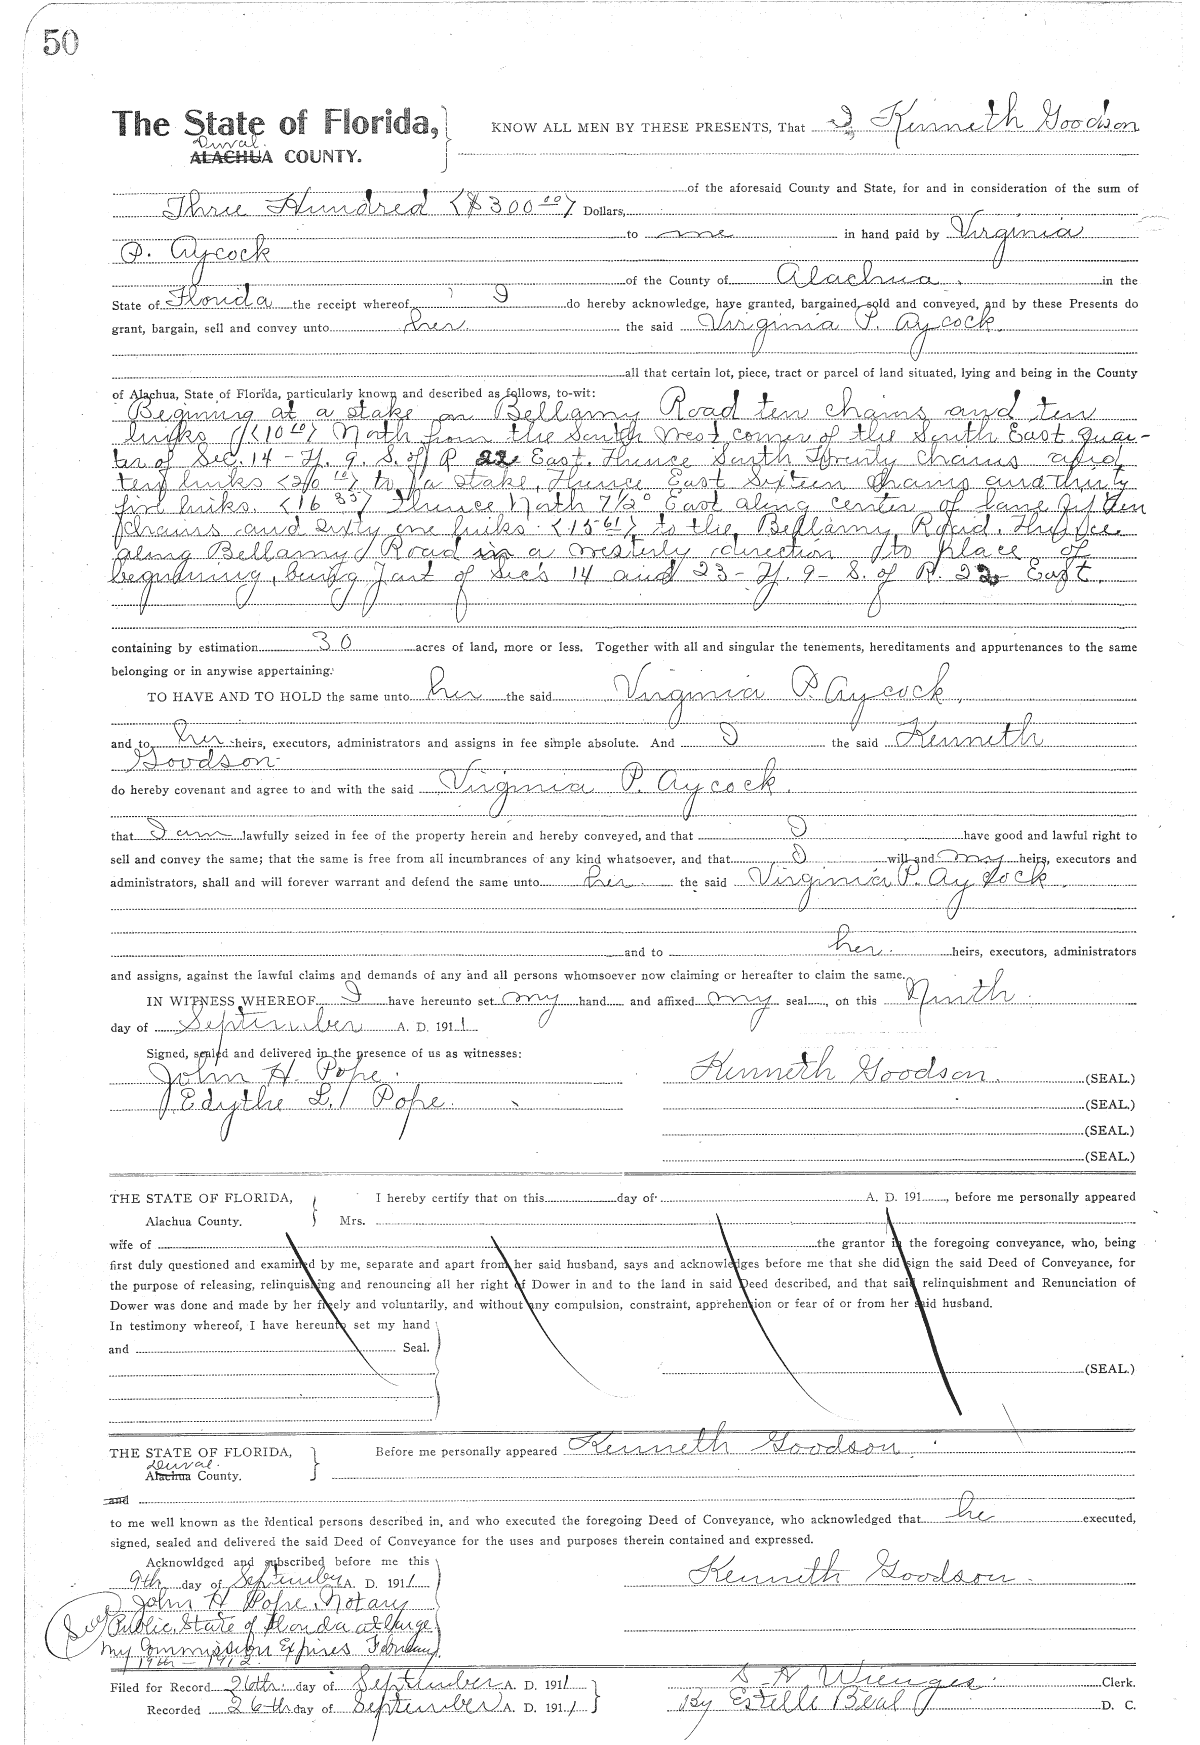 50
The State of Florida, KNOW ALL MEN BY THESE PRESENTS, That I Kenneth Goodson
Duval
ALACHUA COUNTY.
of the aforesaid County and State, for and in consideration of the sum of
Three Hundred ($300 00) Dollars,
to me in hand paid by Virginia
P. Aycock
of the County of Alachua. in the
State of Florida the receipt whereof I do hereby acknowledge, have granted, bargained, sold and conveyed, and by these Presents do
grant, bargain, sell and convey unto her the said Virginia P. Aycock.
all that certain lot, piece, tract or parcel of land situated, lying and being in the County
of Alachua, State of Florida, particularly known and described as follows, to-wit:
Beginning at a stake on Bellamy Road ten chains and ten
links (10 10) North from the South West corner of the South East Quar-
ter of Sec. 14 - T. 9. S. of R 22 East. Thence South Twenty chains and
ten links (20 10) to a stake, Thence East Sixteen chains and thirty
five links. (16 35) Thence North 7 1/2° East along center of lane fifteen
chains and sixty one links (15 61) to the Bellamy Road. Thence
along Bellamy Road in a westerly direction to place of
beginning, being part of Sec's 14 and 23 - T. 9 - S. of R. 22 East.
containing by estimation 30 acres of land, more or less. Together with all and singular the tenements, hereditaments and appurtenances to the same
belonging or in anywise appertaining.
TO HAVE AND TO HOLD the same unto her the said Virginia P Aycock,
and to her heirs, executors, administrators and assigns in fee simple absolute. And I the said Kenneth
Goodson
do hereby covenant and agree to and with the said Virginia P. Aycock.
that I am lawfully seized in fee of the property herein and hereby conveyed, and that I have good and lawful right to
sell and convey the same; that the same is free from all incumbrances of any kind whatsoever, and that I will and my heirs, executors and
administrators, shall and will forever warrant and defend the same unto her the said Virginia P. Aycock.
and to her heirs, executors, administrators
and assigns, against the lawful claims and demands of any and all persons whomsoever now claiming or hereafter to claim the same.
IN WITNESS WHEREOF I have hereunto set my hand and affixed my seal, on this Ninth
day of September A. D. 1911.
Signed, sealed and delivered in the presence of us as witnesses:
John H. Pope. Kenneth Goodson. (SEAL.)
Edythe L. Pope. (SEAL.)
(SEAL.)
(SEAL.)
THE STATE OF FLORIDA, I hereby certify that on this day of A. D. 191 , before me personally appeared
Alachua County. Mrs.
wife of the grantor in the foregoing conveyance, who, being
first duly questioned and examined by me, separate and apart from her said husband, says and acknowledges before me that she did sign the said Deed of Conveyance, for
the purpose of releasing, relinquishing and renouncing all her right of Dower in and to the land in said Deed described, and that said relinquishment and Renunciation of
Dower was done and made by her freely and voluntarily, and without any compulsion, constraint, apprehension or fear of or from her said husband.
In testimony whereof, I have hereunto set my hand
and Seal.
(SEAL.)
THE STATE OF FLORIDA, Before me personally appeared Kenneth Goodson.
Duval.
Alachua County.
and
to me well known as the identical persons described in, and who executed the foregoing Deed of Conveyance, who acknowledged that he executed,
signed, sealed and delivered the said Deed of Conveyance for the uses and purposes therein contained and expressed.
Acknowldged and subscribed before me this
9th day of September A. D. 1911 Kenneth Goodson.
John H Pope, Notary
Public, State of Florida at large.
My Commission Expires February
19th - 1912
Filed for Record 26th day of September A. D. 1911 S. H. Wienges. Clerk.
Recorded 26th day of September A. D. 1911 By Estelle Beal D. C.